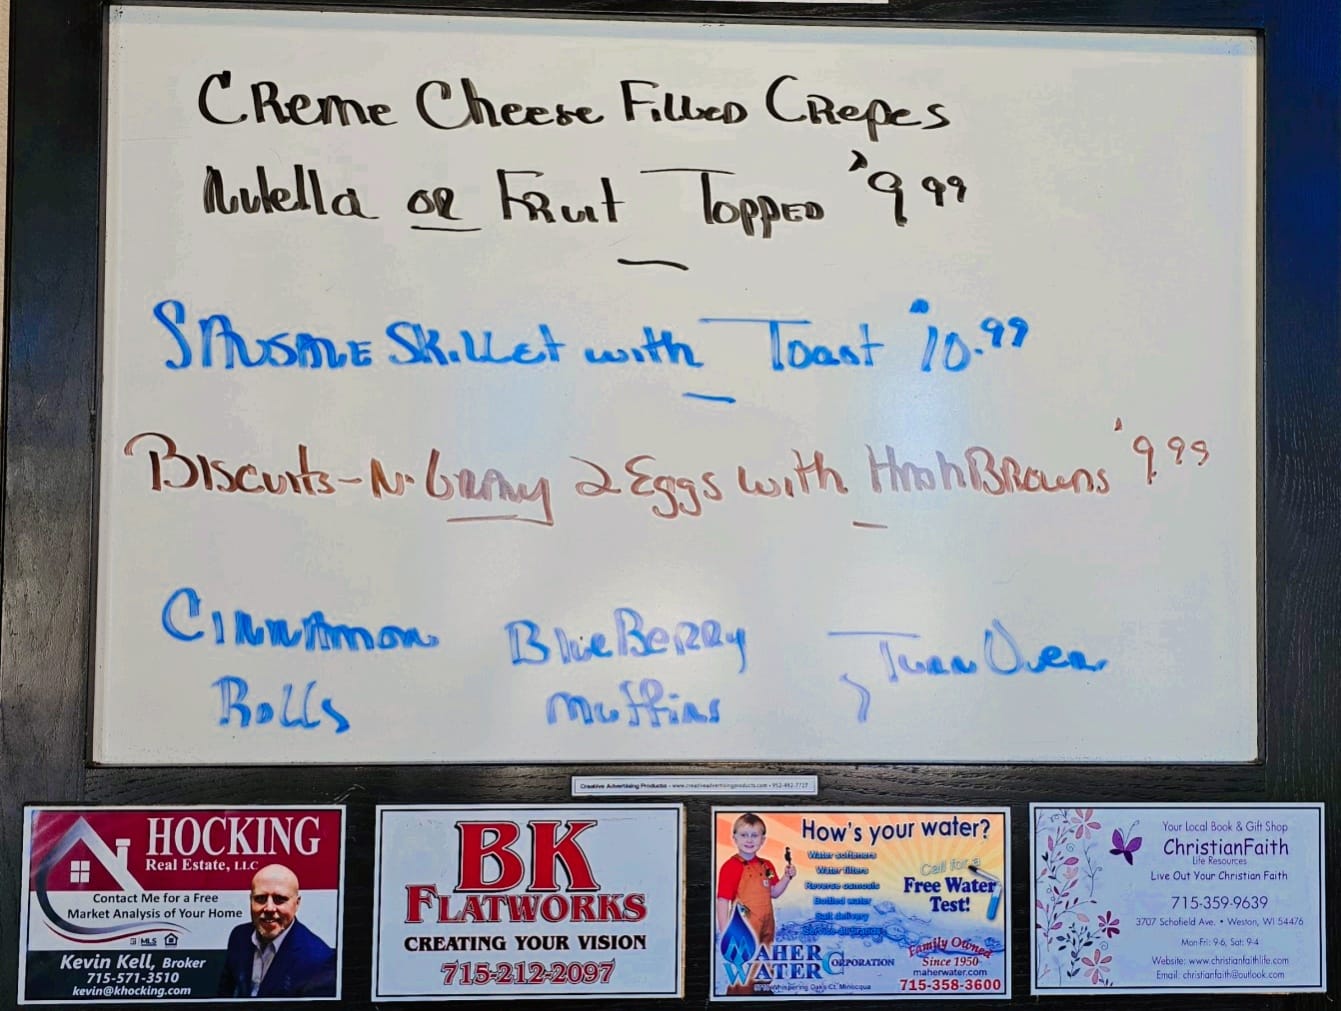 Creme Cheese Filled Crepes
Nutella or Fruit Topped $9.99
Sausage Skillet with Toast $10.99
Biscuits-N-Gravy 2 Eggs with HashBrowns $9.99
Cinnamon Rolls
BlueBerry Muffins
TurnOver
Creative Advertising Products - www.creativeadvertisingproducts.com - 952-492-7727
HOCKING
Real Estate, LLC
Contact Me for a Free
Market Analysis of Your Home
MLS
Kevin Kell, Broker
715-571-3510
kevin@khocking.com
BK
FLATWORKS
CREATING YOUR VISION
715-212-2097
How's your water?
Water softeners
Water filters
Reverse osmosis
Bottled water
Salt delivery
Call for a
Free Water
Test!
MAHER
WATER CORPORATION
Family Owned
Since 1950
maherwater.com
715-358-3600
Whispering Oaks Ct. Minocqua
Your Local Book & Gift Shop
ChristianFaith
Life Resources
Live Out Your Christian Faith
715-359-9639
3707 Schofield Ave. • Weston, WI 54476
Mon-Fri: 9-6, Sat: 9-4
Website: www.christianfaithlife.com
Email: christianfaith@outlook.com